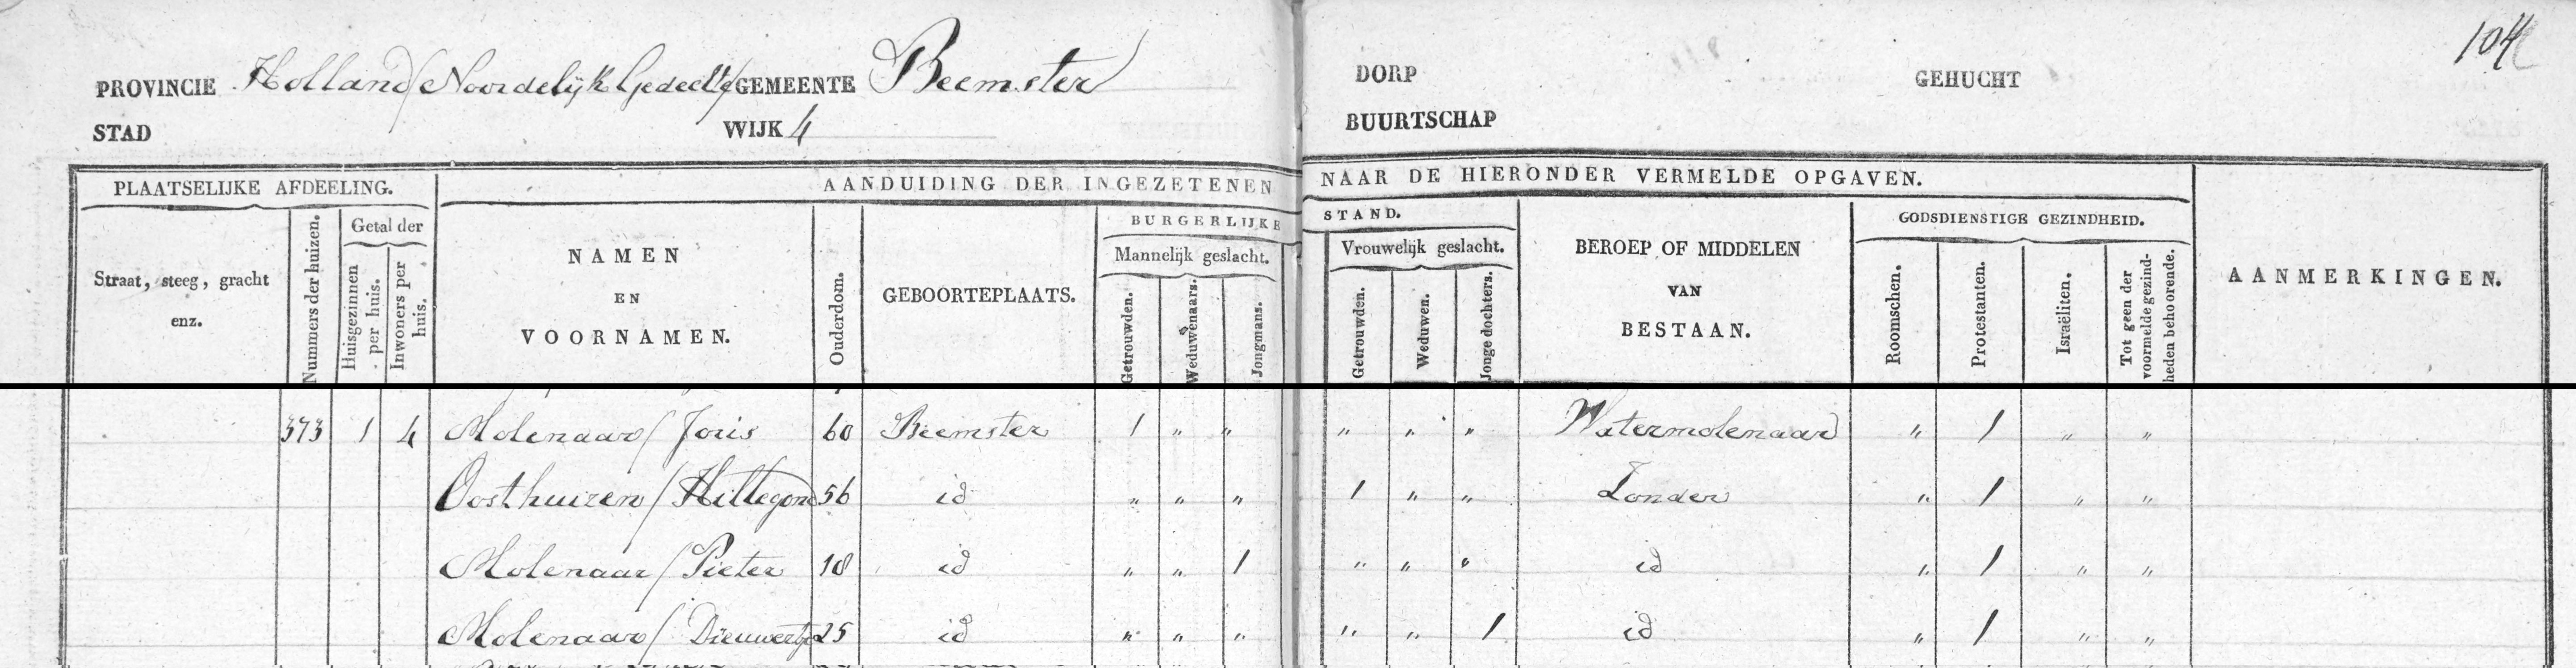 104
PROVINCIE Holland/Noordelijk Gedeelte/ GEMEENTE Beemster DORP GEHUCHT
STAD WIJK 4 BUURTSCHAP
PLAATSELIJKE AFDEELING. AANDUIDING DER INGEZETENEN NAAR DE HIERONDER VERMELDE OPGAVEN. AANMERKINGEN.
Straat, steeg, gracht enz. Nummers der huizen. Getal der Huisgezinnen per huis. Inwoners per huis. NAMEN EN VOORNAMEN. Ouderdom. GEBOORTEPLAATS. BURGERLIJKE STAND. Mannelijk geslacht. Getrouwden. Weduwenaars. Jongmans. Vrouwelijk geslacht. Getrouwden. Weduwen. Jonge dochters. BEROEP OF MIDDELEN VAN BESTAAN. GODSDIENSTIGE GEZINDHEID. Roomschen. Protestanten. Israëliten. Tot geen der voormelde gezindheden behoorende.
373 1 4 Molenaar/ Joris 60 Beemster 1 " " " " " Watermolenaar " 1 " "
Oosthuizen/ Hillegond 56 id " " " 1 " " Zonder " 1 " "
Molenaar/ Pieter 18 id " " 1 " " " id " 1 " "
Molenaar/ Dieuwertje 25 id " " " " " 1 id " 1 " "